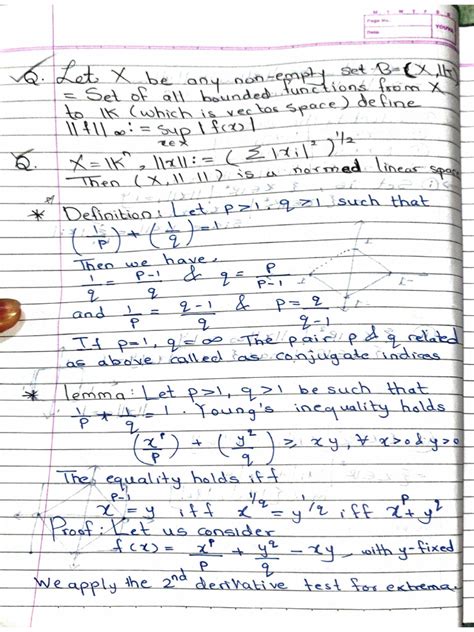 M T W T F S S
Page No.:
Date:
YOUVA
Q. Let X be any non-empty set B=(X,IK)
= Set of all bounded functions from X
to IK (which is vector space) define
||f||∞ := sup x∈X |f(x)|
Q. X=IKⁿ, ||x|| := (Σ|xᵢ|²)^1/2
Then (X, || ||) is a normed linear space
* Definition: Let p>1, q>1 such that
(1/p) + (1/q) = 1
Then we have,
1/q = p-1/q & q = p/p-1
and 1/p = q-1/q & p = q/q-1
If p=1, q=∞ The pair p & q related
as above called as conjugate indices
* lemma: Let p>1, q>1 be such that
1/p + 1/q = 1. Young's inequality holds
(x^p/p) + (y^q/q) ≥ xy, ∀ x>0 & y>0
The equality holds iff
x^p-1 = y iff x^1/q = y^1/q iff x^p + y^q
Proof: Let us consider
f(x) = x^p/p + y^q/q - xy with y-fixed
We apply the 2nd derivative test for extrema